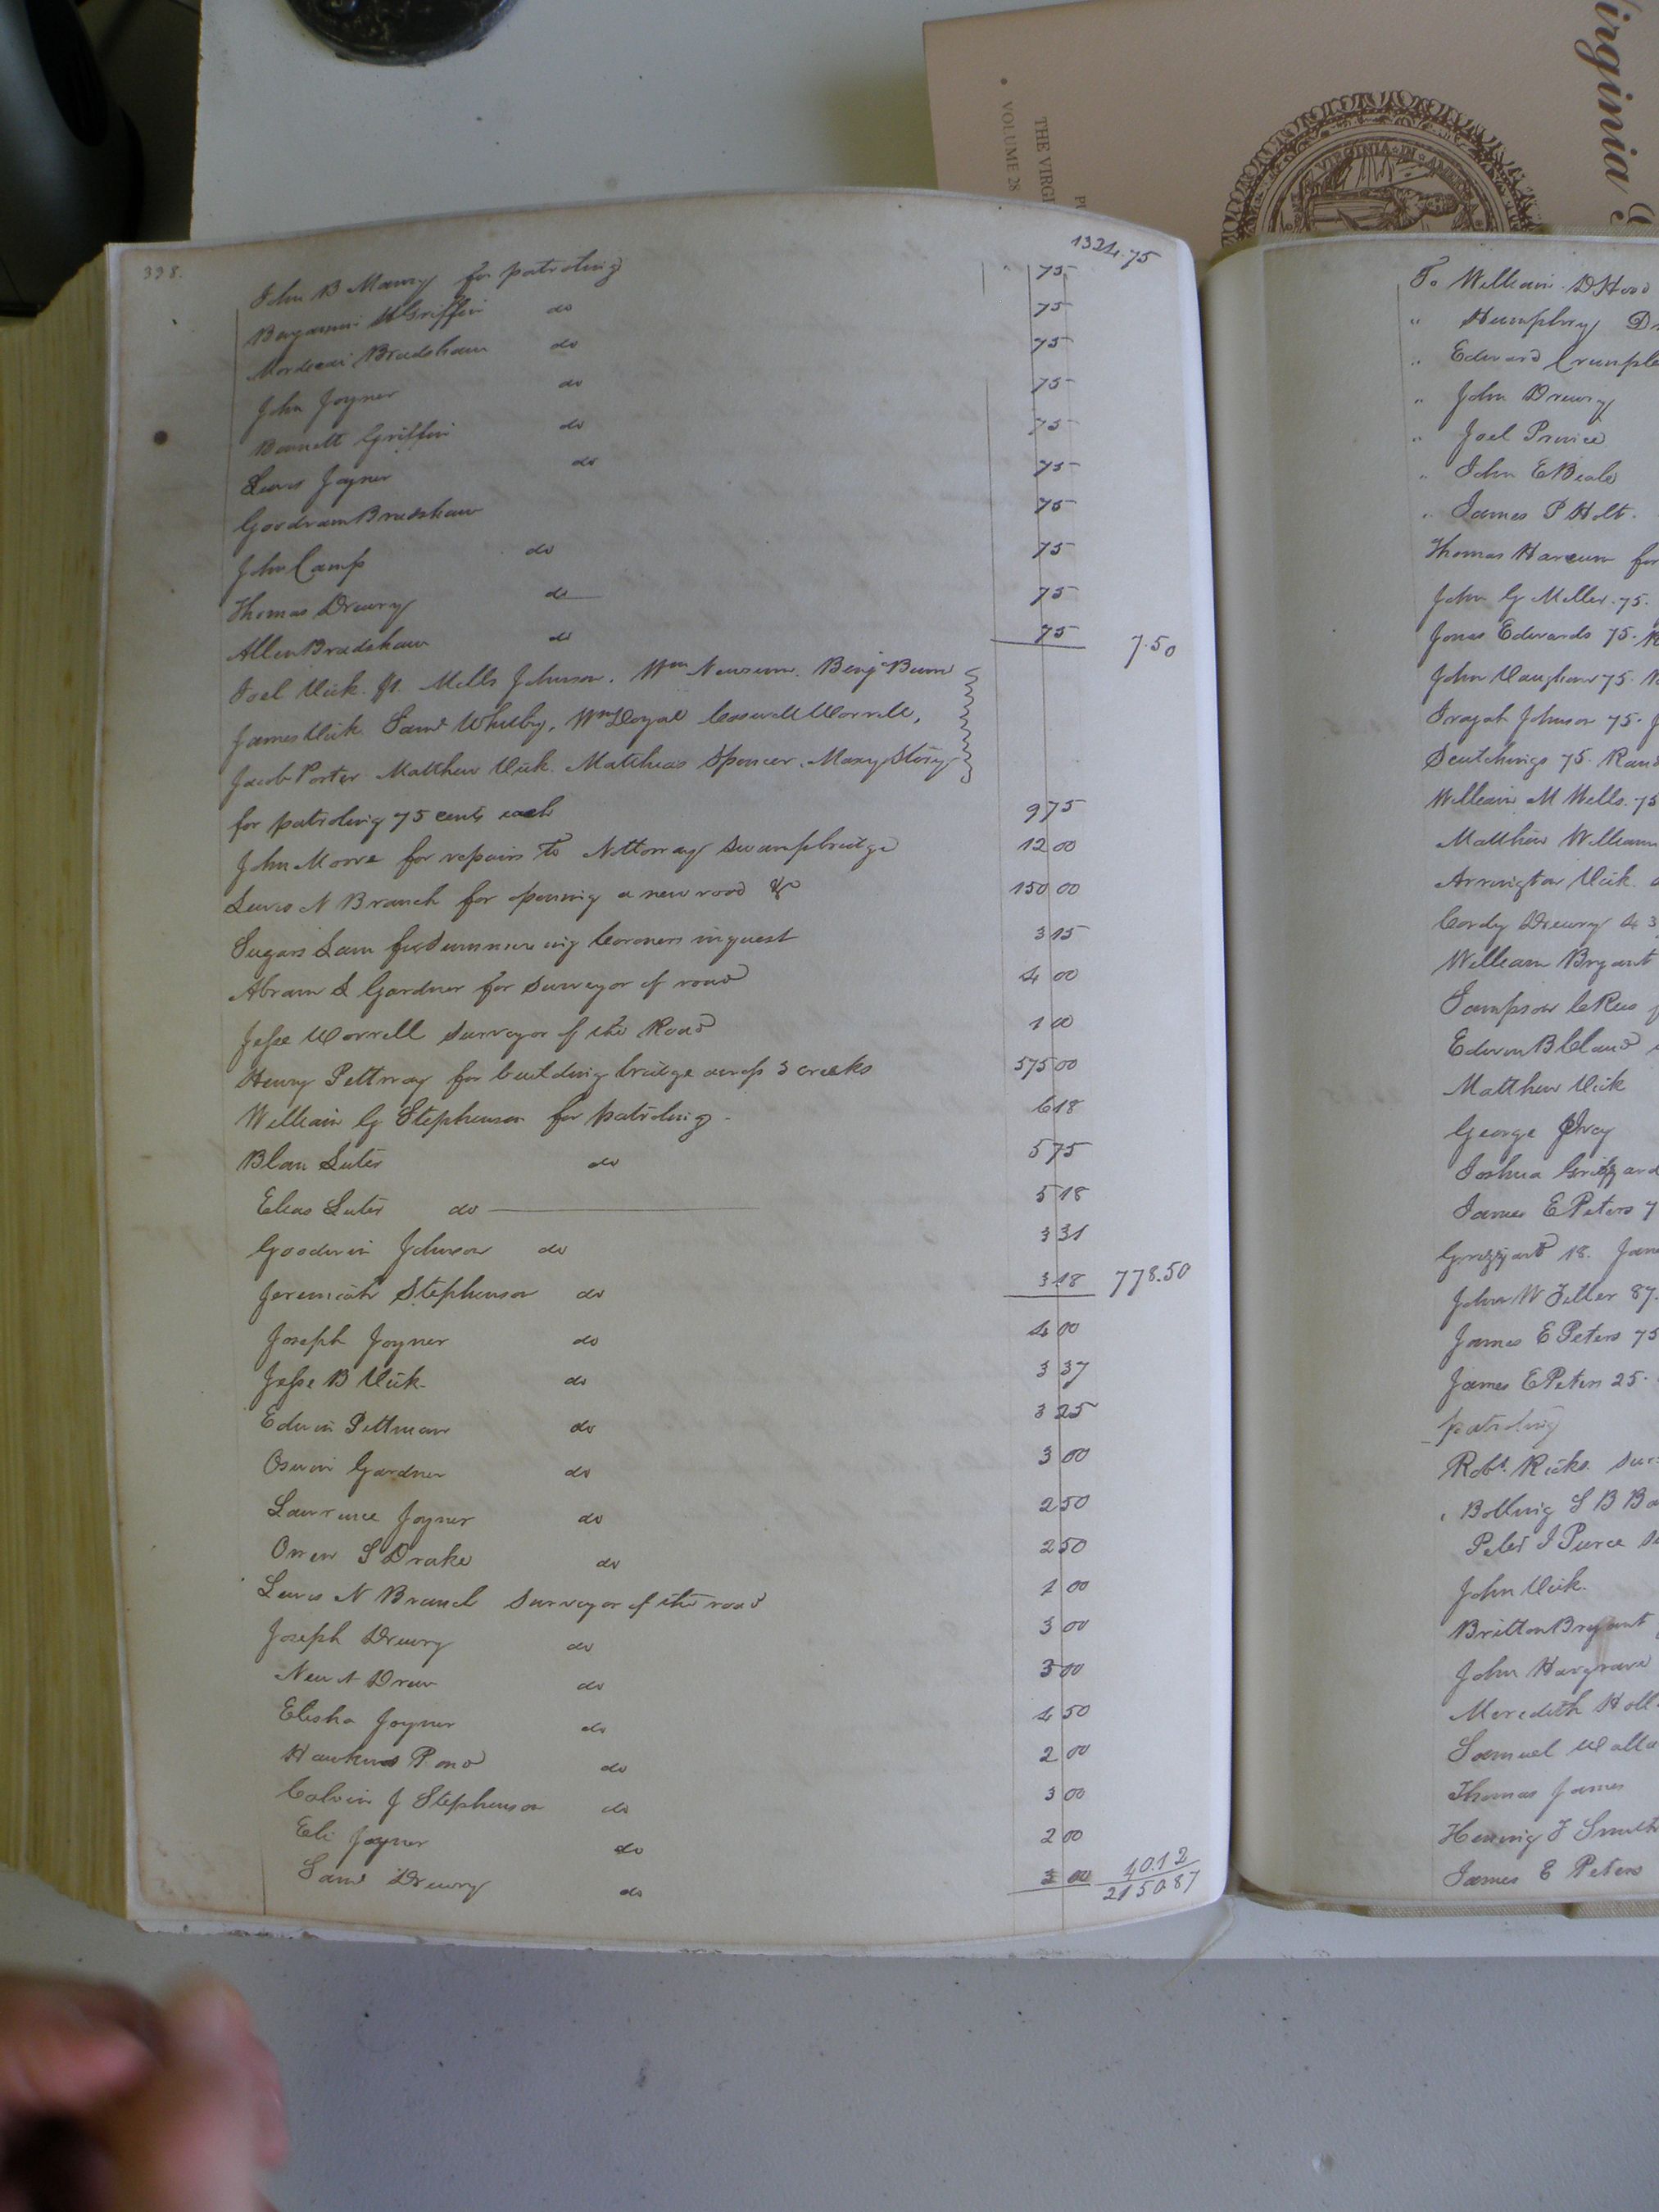 Virginia
THE VIRGI
• VOLUME 28
VIRGINIA IN
338.
1324.75
John B Maury for patroling " 75
Benjamin Griffin do 75
Mordecai Bradshaw do 75
John Joyner do 75
Barnett Griffin do 75
Lewis Joyner do 75
Goodram Bradshaw 75
John Camp do 75
Thomas Drewry do 75
Allen Bradshaw do 75 7.50
Joel Vick. Jr. Mills Johnson. Wm Newsum. Benja Bunn
James Vick. Saml Whitby, Wm Loyal Caswell Worrell,
Jacob Porter Matthew Vick. Matthias Spencer. Maxy Story
for patroling 75 cents each 9 75
John Moore for repairs to Nottoway swamp bridge 12 00
Lewis N Branch for opening a new road &c 150 00
Sugars Lain for summoning Coroners inquest 3 15
Abram S Gardner for surveyor of road 4 00
Jesse Worrell surveyor of the Road 1 00
Henry Pettway for building bridge across 3 creeks 575 00
William G Stephenson for patroling - 6 18
Blan Luter do 5 75
Elias Luter do 5 18
Goodwin Johnson do 3 31
Jeremiah Stephenson do 3 18 778.50
Joseph Joyner do 4 00
Jesse B Vick do 3 37
Edwin Pittman do 3 25
Oswin Gardner do 3 00
Lawrence Joyner do 2 50
Orren S Drake do 2 50
Lewis N Branch surveyor of the road 1 00
Joseph Drewry do 3 00
Newt Drew do 3 00
Elisha Joyner do 4 50
Hawkins Pond do 2 00
Calvin J Stephenson do 3 00
Eli Joyner do 2 00
Saml Drewry do 3 00 40.12
2150.87
To William D Hood
" Humphry
" Edward
" John Drewry
" Joel Prince
" John E Beale
" James P Holt.
Thomas Harcum for
John G Miller. 75.
Jonas Edwards 75.
John Vaughan 75.
Johnson 75.
Scutchings 75.
William M Wells. 75
Matthew William
Arrington Vick.
Cordy Drewry 4 3
William Bryant
Sampson C Reese
Edwin B Claud
Matthew Vick
George Ivey
Joshua
James E Peters 7
Grizzard 18.
John W 87.
James E Peters 75
James E Peters 25.
patroling
Robt. Ricks.
Bolling S B
Peter J Pierce
John Vick.
Britton Bryant
John Hargrave
Meredith
Samuel
Thomas James
Henning T Smith
James E Peters